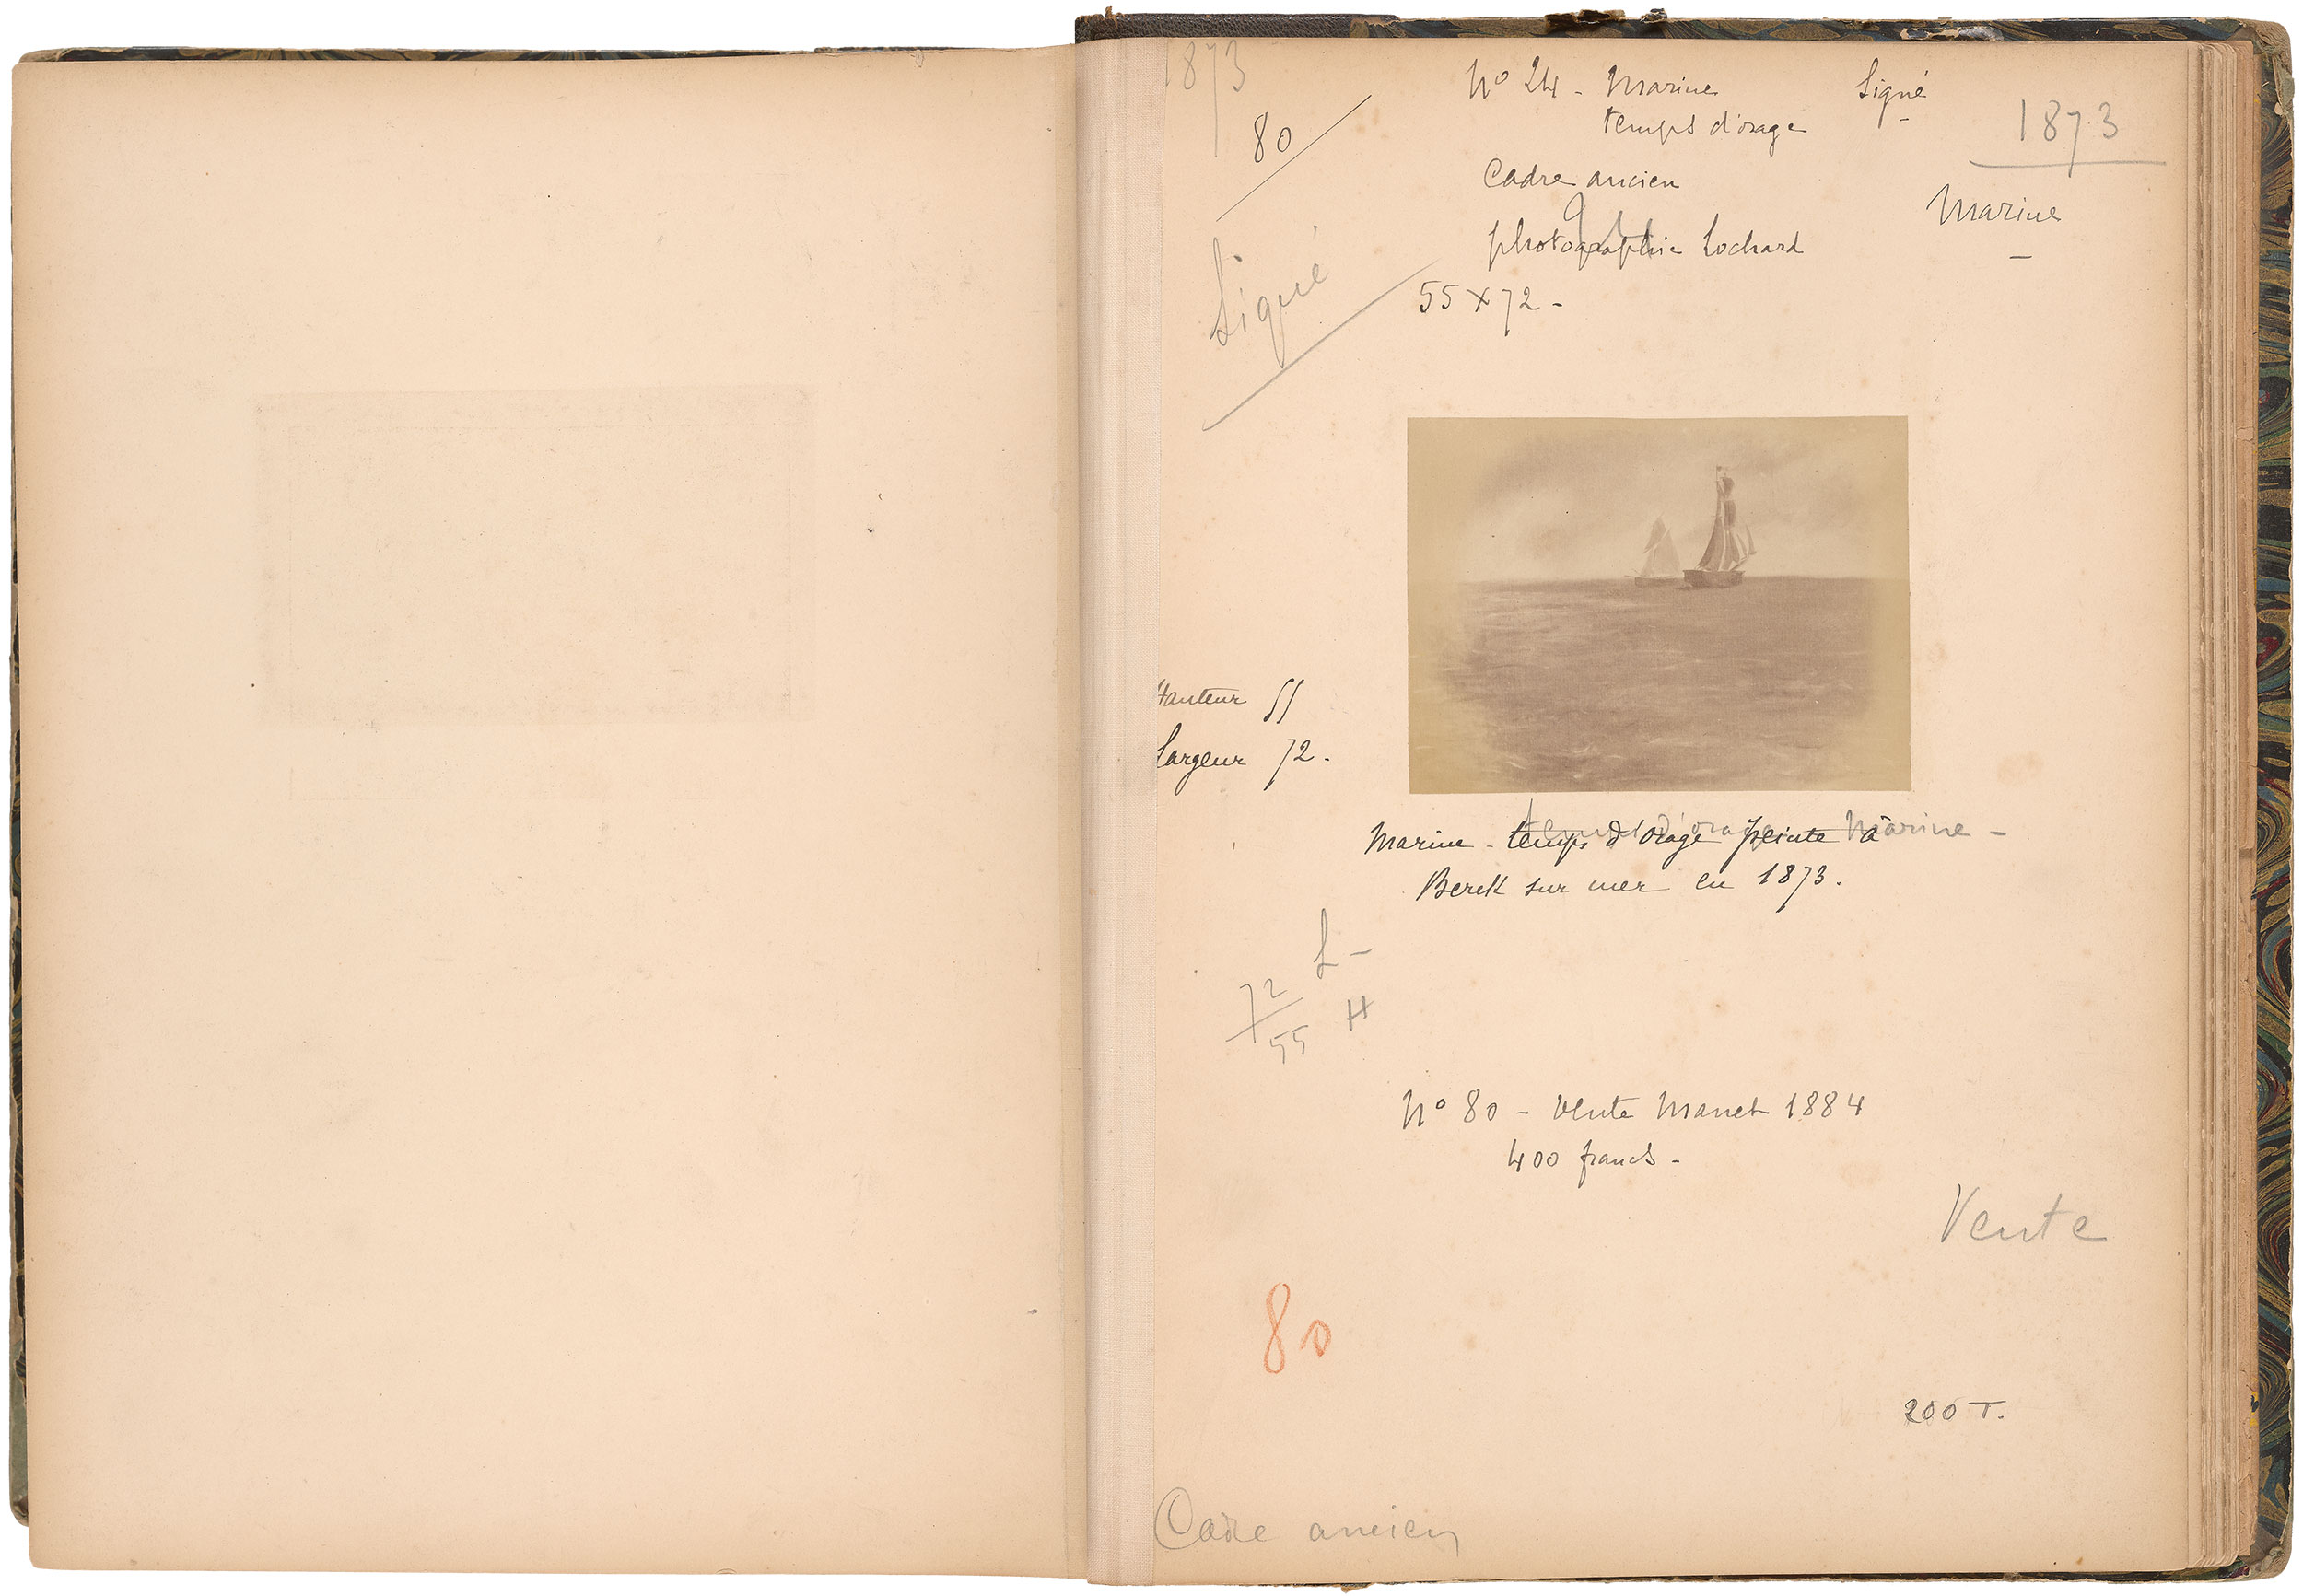 1873
80
Nº 24 - Marine
Signé
temps d'orage
1873
Cadre ancien
Marine
photographie Lochard
Signé
55 x 72 -
Hauteur 55
Largeur 72.
temps d'orage Marine -
Marine - temps d'orage peinte à
Berck sur mer en 1873.
L -
72
55 H
Nº 80 - Vente Manet 1884
400 francs -
Vente
80
200 T.
Cadre ancien